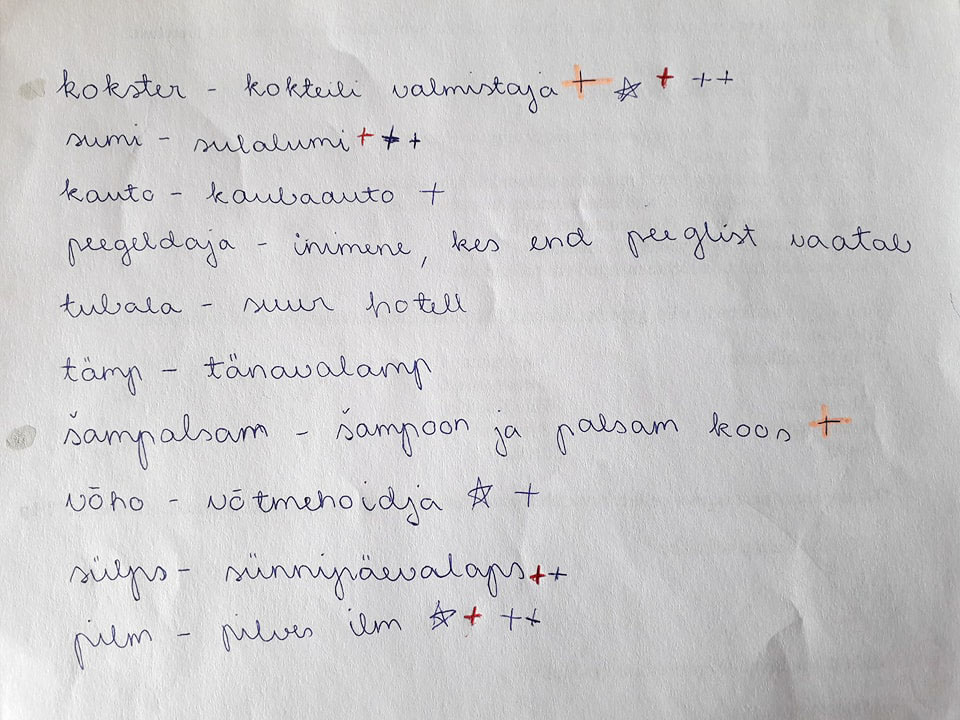 kokster - kokteili valmistaja + ☆ + ++
sumi - sulalumi + + +
kauto - kaubaauto +
peegeldaja - inimene, kes end peeglist vaatab
tubala - suur hotell
tämp - tänavalamp
šampalsam - šampoon ja palsam koos +
võho - võtmehoidja ☆ +
sülps - sünnipäevalaps ++
pilm - pilves ilm ☆ + ++